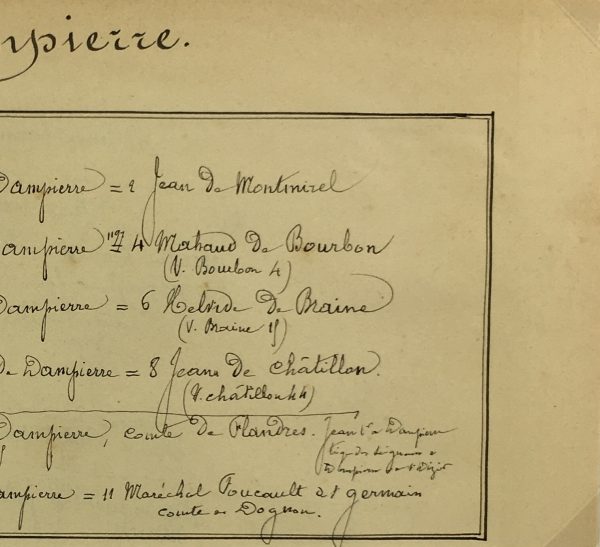 mpierre.
Dampierre = 2 Jean de Montmirel
Dampierre 1197 = 4 Mahaud de Bourbon
(V. Bourbon 4)
Dampierre = 6 Helvide de Braine
(V. Braine 15)
de Dampierre = 8 Jean de Châtillon.
(V. châtillon 44)
Dampierre, comte de Flandres. Jean 1er de Dampierre
tige des seigneurs de
Dampierre et St Dizier
ampierre = 11 Maréchal Foucault de St germain
comte de Dognon.